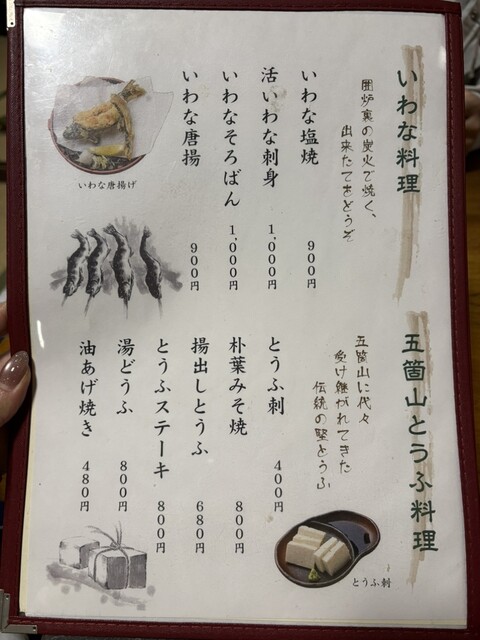 いわな料理
囲炉裏の炭火で焼く、
出来たてをどうぞ
いわな塩焼 900円
活いわな刺身 1,000円
いわなそろばん 1,000円
いわな唐揚 900円
いわな唐揚げ
五箇山とうふ料理
五箇山に代々
受け継がれてきた
伝統の堅とうふ
とうふ刺 400円
朴葉みそ焼 800円
揚出しとうふ 680円
とうふステーキ 800円
湯どうふ 800円
油あげ焼き 480円
とうふ刺